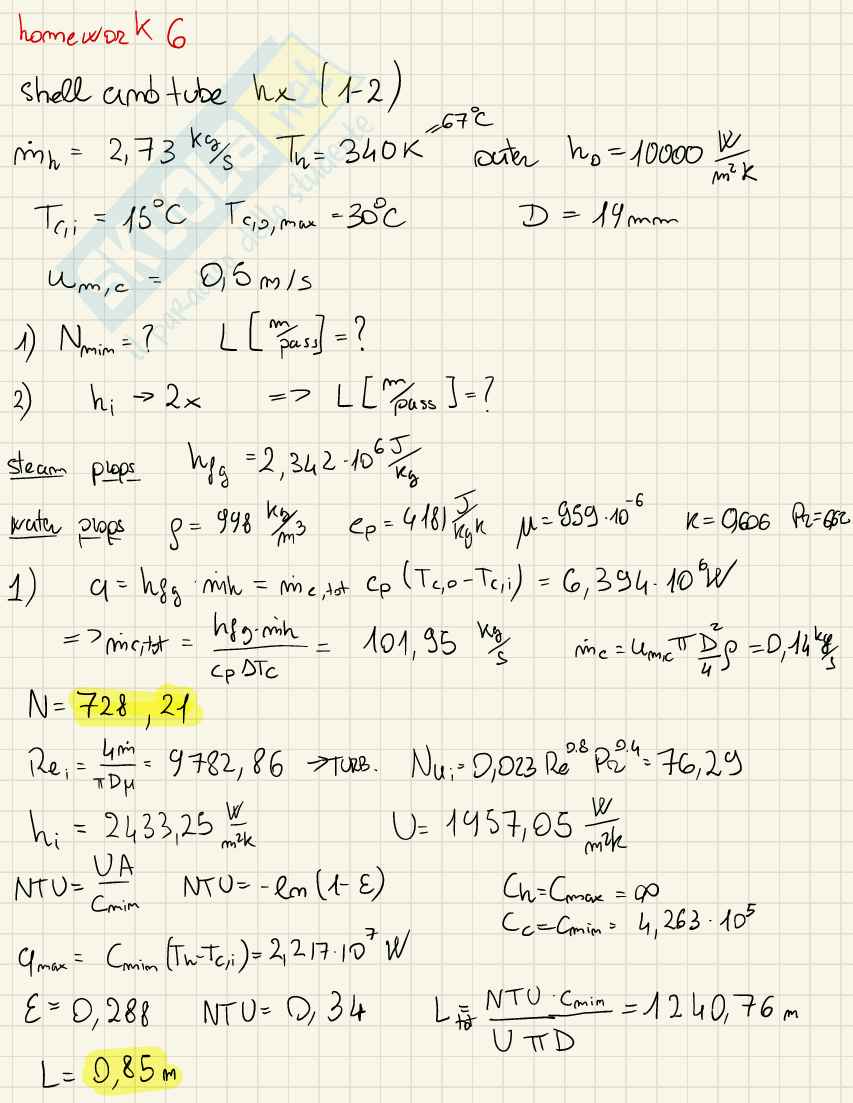 homework 6
shell and tube hx (1-2)
ṁh = 2,73 kg/s Th = 340K =67°C outer ho = 10000 W/m²K
Tc,i = 15°C Tc,o,max = 30°C D = 19mm
um,c = 0,5 m/s
1) Nmin = ? L [m/pass] = ?
2) hi → 2x => L [m/pass] = ?
steam props hfg = 2,342·10⁶ J/kg
water props ρ = 998 kg/m³ cp = 4181 J/kgK μ = 959·10⁻⁶ k = 0,606 Pr = 6,62
1) q = hfg·ṁh = ṁc,tot cp (Tc,o - Tc,i) = 6,394·10⁶ W
=> ṁc,tot = hfg·ṁh / cp ΔTc = 101,95 kg/s ṁc = um,c π D²/4 ρ = 0,14 kg/s
N = 728,21
Rei = 4ṁ / πDμ = 9782,86 → TURB. Nui = 0,023 Re^0.8 Pr^0.4 = 76,29
hi = 2433,25 W/m²K U = 1957,05 W/m²K
NTU = UA / Cmin NTU = -ln (1-ε) Ch = Cmax = ∞
Cc = Cmin = 4,263·10⁵
qmax = Cmin (Th - Tc,i) = 2,217·10⁷ W
ε = 0,288 NTU = 0,34 Ltot = NTU·Cmin / UπD = 1240,76 m
L = 0,85 m
SKUOLA.net
il paradiso dello studente